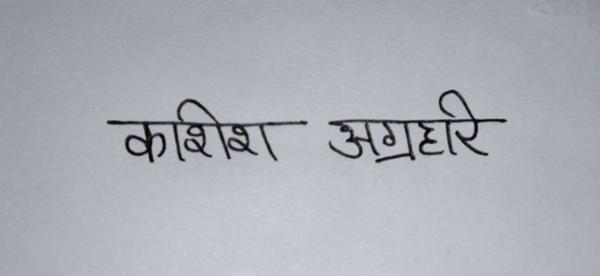 काशिश अग्रहरि